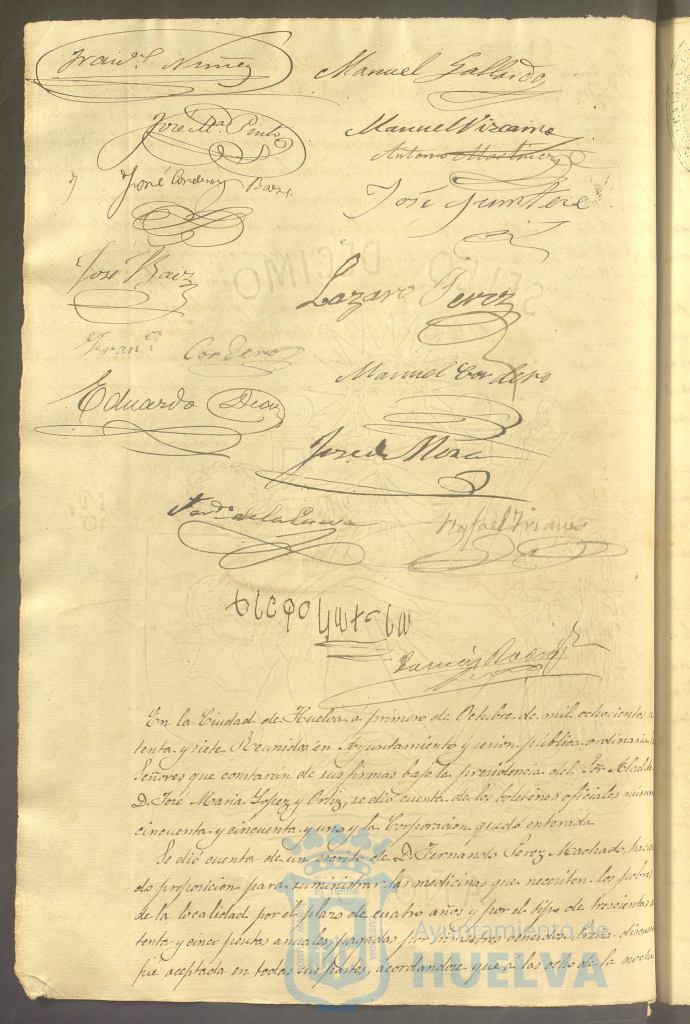 Franco Nuñez
Manuel Gallardo
José Mª Pinto
Manuel Vizcaino
Antonio Martinez
José Cordero Baez
José
José Baez
Lazaro Perez
Franco Cordero
Manuel Cordero
Eduardo Diaz
José de Mora
Ferdo de la Cueva
Rafael Trianes
Diego Garcia
Ramón Rodrigz
SELLO DECIMO
En la Ciudad de Huelva á primero de Octubre de mil ochocientos
tenta y siete Reunidos en Ayuntamiento y sesion pública ordinaria
Señores que constarán de sus firmas bajo la presidencia del Sor Alcalde
D. José Maria Lopez y Ortiz, se dió cuenta de los boletines oficiales núme
cincuenta y cincuenta y uno y la Corporacion quedó enterada.
Se dió cuenta de un escrito de D. Fernando Perez Machado, hacien
do proposicion para suministrar las medicinas que necesiten los pobres
de la localidad por el plazo de cuatro años y por el tipo de trescientas
tenta y cinco pesetas anuales, pagadas por trimestres vencidos; breve discusi
fué aceptada en todas sus partes, acordandose que a las ocho de la noche
Ayuntamiento de
HUELVA